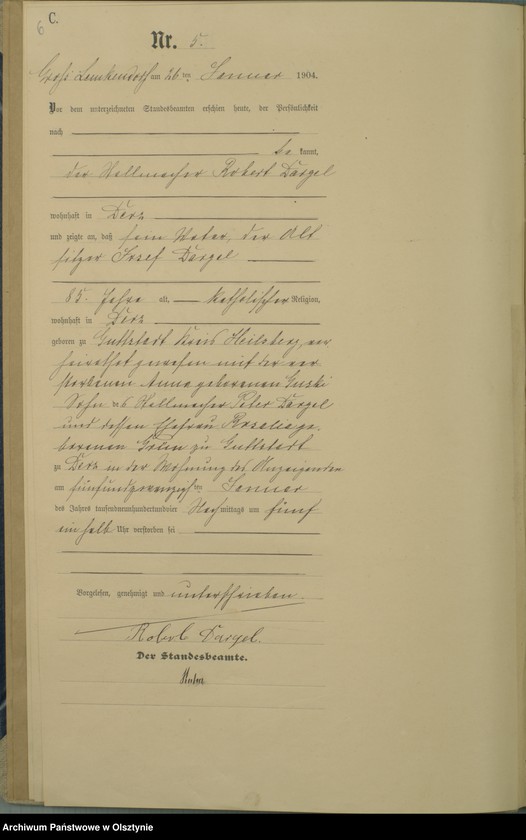 6
C.
Nr. 5.
Groß Lemkendorf am 26 ten Januar 1904.
Vor dem unterzeichneten Standesbeamten erschien heute, der Persönlichkeit
nach
be kannt,
der Stellmacher Robert Dargel
wohnhaft in Derz
und zeigte an, daß sein Vater, der Alt
sitzer Josef Dargel
85. Jahre alt, katholischer Religion,
wohnhaft in Derz
geboren zu Guttstadt Kreis Heilsberg, ver
heirathet gewesen mit der ver
storbenen Anna geborenen
Sohn des Stellmacher Peter Dargel
und dessen Ehefrau Rosalia ge
borenen zu Guttstadt
zu Derz in der Wohnung des Anzeigenden
am fünfundzwanzigsten Januar
des Jahres tausendneunhundertundvier Nachmittags um fünf
ein halb Uhr verstorben sei
Vorgelesen, genehmigt und unterschrieben
Robert Dargel.
Der Standesbeamte.
Archiwum Państwowe w Olsztynie